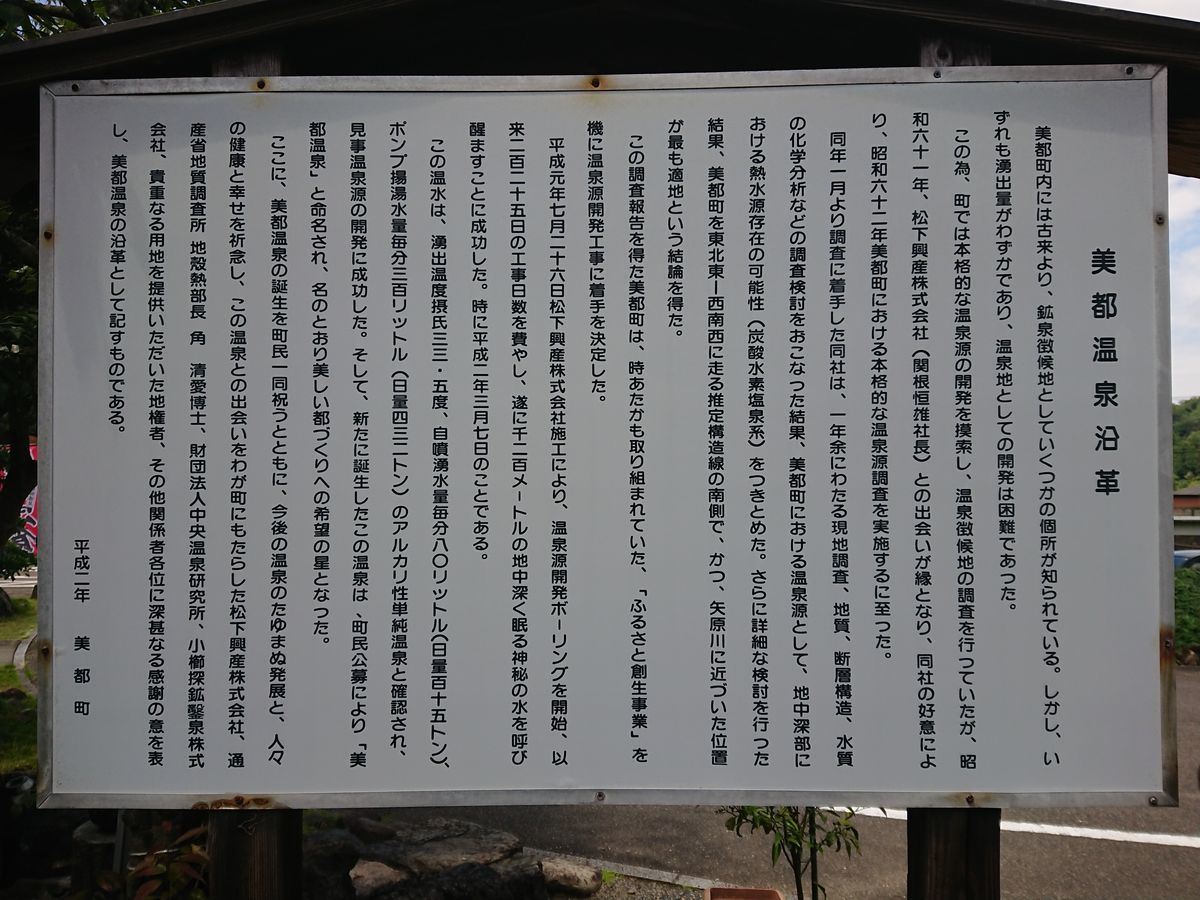 美都温泉沿革
美都町内には古来より、鉱泉徴候地としていくつかの個所が知られている。しかし、い
ずれも湧出量がわずかであり、温泉地としての開発は困難であった。
この為、町では本格的な温泉源の開発を摸索し、温泉徴候地の調査を行つていたが、昭
和六十一年、松下興産株式会社（関根恒雄社長）との出会いが縁となり、同社の好意によ
り、昭和六十二年美都町における本格的な温泉源調査を実施するに至った。
同年一月より調査に着手した同社は、一年余にわたる現地調査、地質、断層構造、水質
の化学分析などの調査検討をおこなった結果、美都町における温泉源として、地中深部に
おける熱水源存在の可能性（炭酸水素塩泉系）をつきとめた。さらに詳細な検討を行った
結果、美都町を東北東ー西南西に走る推定構造線の南側で、かつ、矢原川に近づいた位置
が最も適地という結論を得た。
この調査報告を得た美都町は、時あたかも取り組まれていた、「ふるさと創生事業」を
機に温泉源開発工事に着手を決定した。
平成元年七月二十六日松下興産株式会社施工により、温泉源開発ボーリングを開始、以
来二百二十五日の工事日数を費やし、遂に千二百メートルの地中深く眠る神秘の水を呼び
醒ますことに成功した。時に平成二年三月七日のことである。
この温水は、湧出温度摂氏三三・五度、自噴湧水量毎分八〇リットル（日量百十五トン）、
ポンプ揚湯水量毎分三百リットル（日量四三二トン）のアルカリ性単純温泉と確認され、
見事温泉源の開発に成功した。そして、新たに誕生したこの温泉は、町民公募により「美
都温泉」と命名され、名のとおり美しい都づくりへの希望の星となった。
ここに、美都温泉の誕生を町民一同祝うとともに、今後の温泉のたゆまぬ発展と、人々
の健康と幸せを祈念し、この温泉との出会いをわが町にもたらした松下興産株式会社、通
産省地質調査所 地殻熱部長 角 清愛博士、財団法人中央温泉研究所、小櫛探鉱鑿泉株式
会社、貴重なる用地を提供いただいた地権者、その他関係者各位に深甚なる感謝の意を表
し、美都温泉の沿革として記すものである。
平成二年 美都町